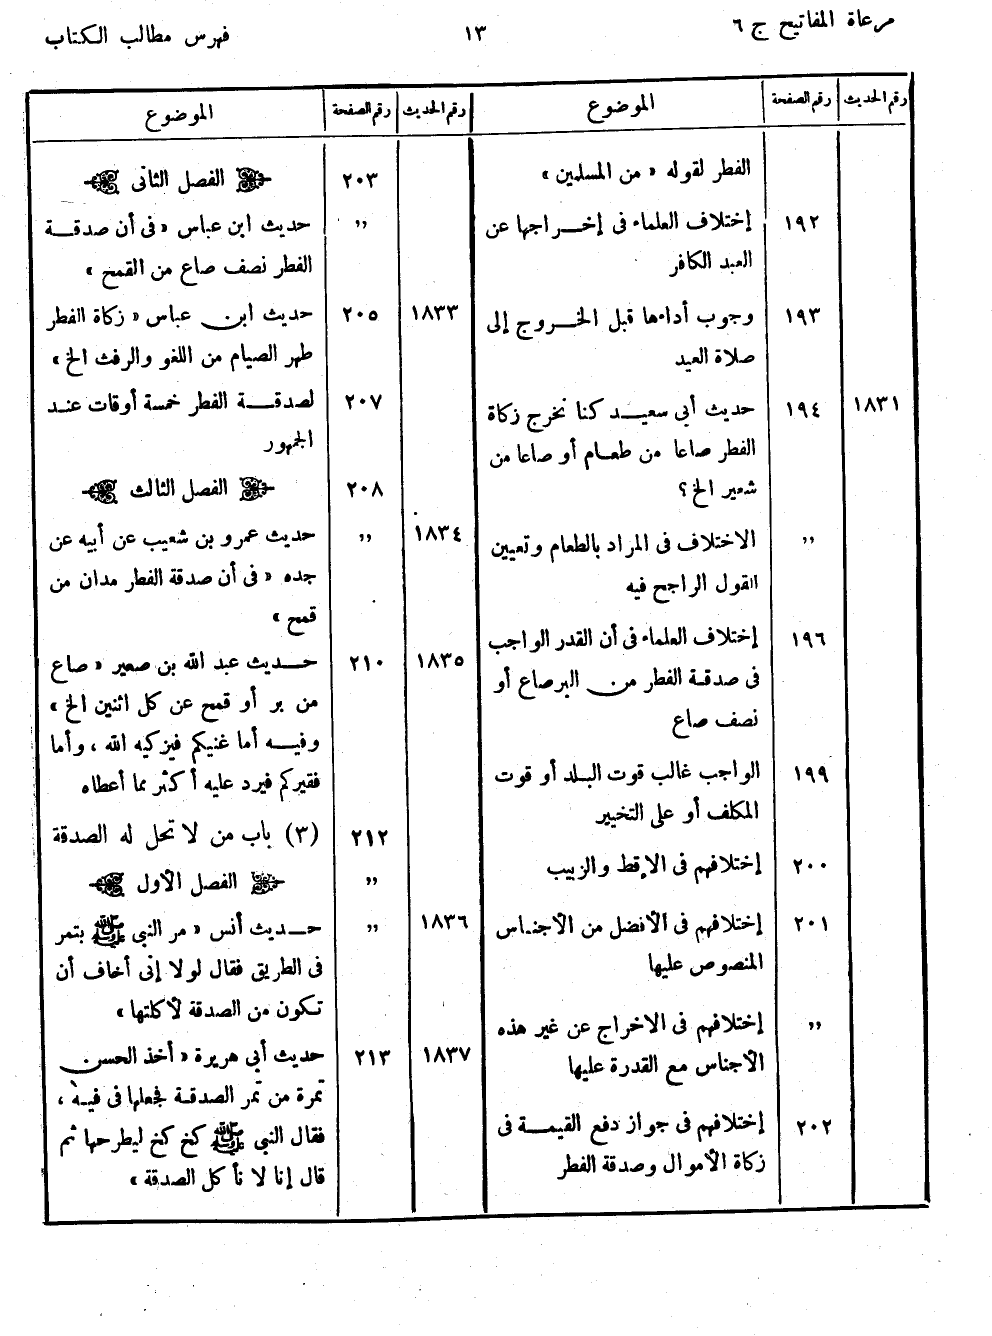 مرعاة المفاتيح ج ٦
١٣
فهرس مطالب الكتاب
رقم الحديث رقم الصفحة الموضوع
الفطر لقوله « من المسلمين »
١٩٢ إختلاف العلماء فى إخراجها عن
العبد الكافر
١٩٣ وجوب أداءها قبل الخروج إلى
صلاة العيد
١٨٣١ ١٩٤ حديث أبى سعيد كنا نخرج زكاة
الفطر صاعا من طعام أو صاعا من
شعير الخ ؟
,, الاختلاف فى المراد بالطعام وتعيين
القول الراجح فيه
١٩٦ إختلاف العلماء فى أن القدر الواجب
فى صدقة الفطر من البر صاع أو
نصف صاع
١٩٩ الواجب غالب قوت البلد أو قوت
المكلف أو على التخيير
٢٠٠ إختلافهم فى الإقط والزبيب
٢٠١ إختلافهم فى الأفضل من الأجناس
المنصوص عليها
,, إختلافهم فى الاخراج عن غير هذه
الأجناس مع القدرة عليها
٢٠٢ إختلافهم فى جواز دفع القيمة فى
زكاة الأموال وصدقة الفطر
رقم الحديث رقم الصفحة الموضوع
٢٠٣ الفصل الثانى
,, حديث ابن عباس « فى أن صدقة
الفطر نصف صاع من القمح »
١٨٣٣ ٢٠٥ حديث ابن عباس « زكاة الفطر
طهر الصيام من اللغو والرفث الخ »
٢٠٧ لصدقة الفطر خمسة أوقات عند
الجمهور
٢٠٨ الفصل الثالث
١٨٣٤ ,, حديث عمرو بن شعيب عن أبيه عن
جده « فى أن صدقة الفطر مدان من
قمح »
١٨٣٥ ٢١٠ حديث عبد الله بن صعير « صاع
من بر أو قمح عن كل اثنين الخ »
وفيه أما غنيكم فيزكيه الله ، وأما
فقيركم فيرد عليه أكثر مما أعطاه
٢١٢ (٣) باب من لا تحل له الصدقة
,, الفصل الأول
١٨٣٦ ,, حديث أنس « مر النبي ﷺ بتمر
فى الطريق فقال لولا إنى أخاف أن
تكون من الصدقة لأكلتها »
١٨٣٧ ٢١٣ حديث أبى هريرة « أخذ الحسن
تمرة من تمر الصدقة فجعلها فى فيه ،
فقال النبي ﷺ كخ كخ ليطرحها ثم
قال إنا لا نأكل الصدقة »